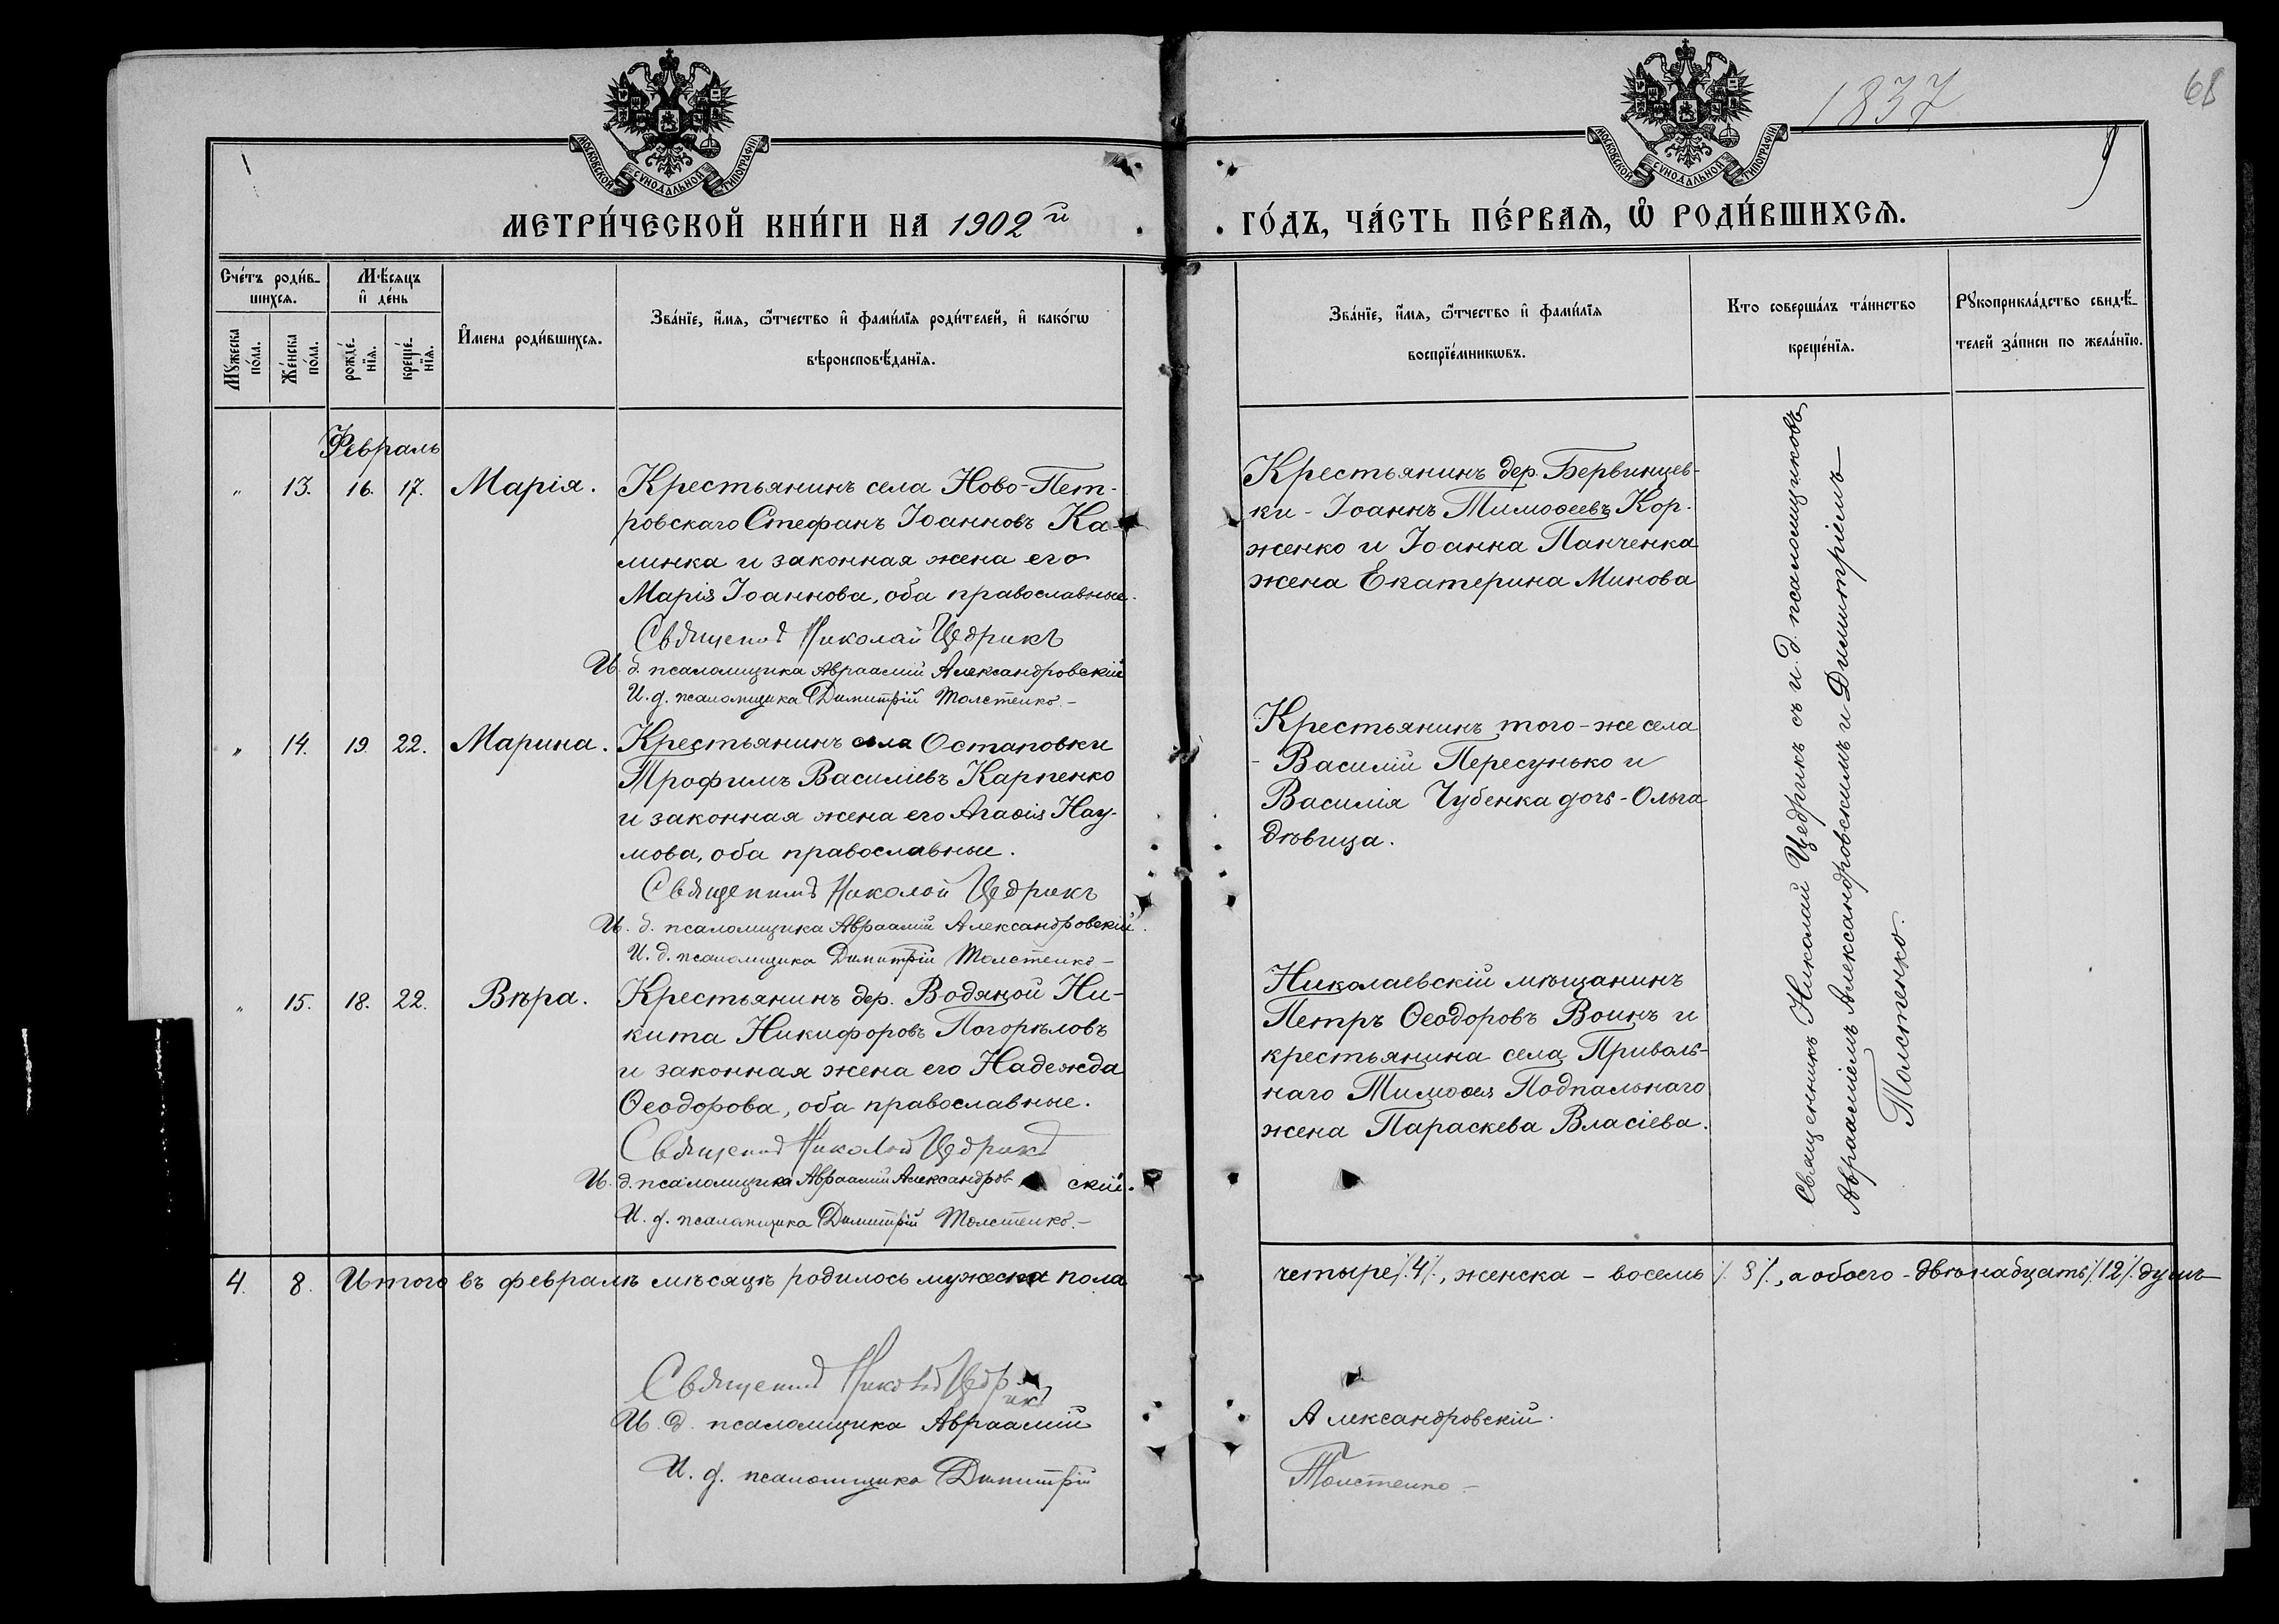 1837
68
МОСКОВСКОЙ СѴНОДАЛЬНОЙ ТИПОГРАФІИ
МОСКОВСКОЙ СѴНОДАЛЬНОЙ ТИПОГРАФІИ
МЕТРИ́ЧЕСКОЙ КНИ́ГИ НА 1902й
ГО́ДЪ, ЧА́СТЬ ПЕ́РВАѦ, Ѽ РОДИ́ВШИХСѦ.
Сче́тъ роди́в-
шихсѧ.
Мꙋ́жеска
по́ла.
Же́нска
по́ла.
Мѣ́сяцъ
и҆ де́нь
рожде́-
нїѧ.
креще́-
нїѧ.
И҆мена роди́вшихсѧ.
Зва́нїе, и҆́мѧ, ѻ҆́тчество и҆ фами́лїѧ роди́телей, и҆ како́гѡ
вѣроисповѣ́данїѧ.
Зва́нїе, и҆́мѧ, ѻ҆́тчество и҆ фами́лїѧ
воспрїе́мникѡвъ.
Кто соверша́лъ та́инство
креще́нїѧ.
Рꙋкоприкла́дство свидѣ́-
телей за́писи по жела́нїю.
Февраль
" 13. 16. 17. Марія.
Крестьянинъ села Ново-Пет-
ровскаго Стефанъ Іоанновъ Ка-
минка и законная жена его
Марія Іоаннова, оба православные.
Священникъ Николай Цедрикъ
И. д. псаломщика Авраамій Александровскій
И. д. псаломщика Димитрій Толстенко. –
Крестьянинъ дер. Бервинцев-
ки - Іоаннъ Тимоѳеевъ Кор-
женко и Іоанна Панченка
жена Екатерина Минова
" 14. 19. 22. Марина.
Крестьянинъ села Остаповки
Трофимъ Василіевъ Карпенко
и законная жена его Агаѳія Нау-
мова, оба православные.
Священникъ Николай Цедрикъ
И. д. псаломщика Авраамій Александровскій.
И. д. псаломщика Димитрій Толстенко –
Крестьянинъ того-же села
- Василій Пересунько и
Василія Чубенка дочь - Ольга
дѣвица.
" 15. 18. 22. Вѣра.
Крестьянинъ дер. Водяной Ни-
кита Никифоровъ Погорѣловъ
и законная жена его Надежда
Ѳеодорова, оба православные.
Священникъ Николай Цедрикъ
И. д. псаломщика Авраамій Александров скій.
И. д. псаломщика Димитрій Толстенко. –
Николаевскій мѣщанинъ
Петръ Ѳеодоровъ Воинъ и
крестьянина села Приволь-
наго Тимоѳея Подпальнаго
жена Параскева Власіева.
Священникъ Николай Цедрикъ съ и. д. псаломщиковъ
Авраамiемъ Александровскимъ и Димитріемъ
Толстенко.
4. 8. Итого въ февралѣ мѣсяцѣ родилось мужеска пола
четыре /.4/., женска – восемь /. 8 /., а обоего - двѣнадцать /.12/. душъ
Священникъ Николай Цедрикъ
И. д. псаломщика Авраамій
Александровскій.
И. д. псаломщика Димитрій
Толстенко –